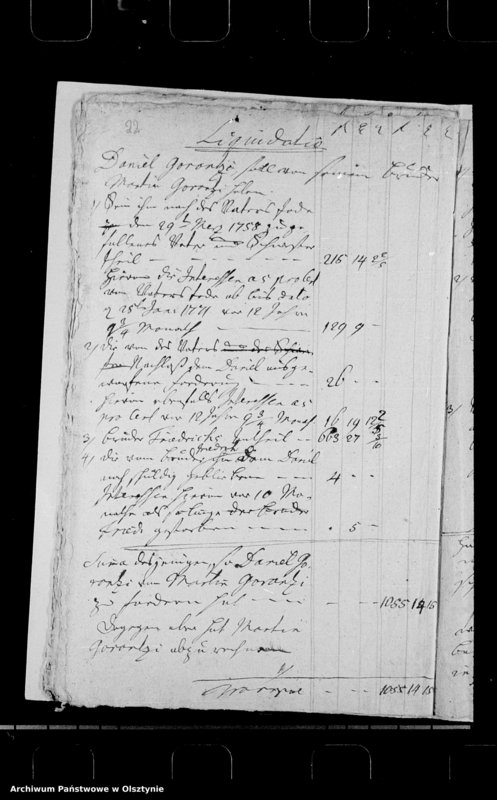 22
Liquidatio
Daniel Gorontzi soll von seinem Bruder
Martin Gorontzi haben
1) Sein ihm nach des Vaters Tode
den 29t May 1758 zuge
fallenes Vater und Schwester
theil — — — 215 14
Hievon die Interessen a 5 proCt
von Vaters Tode ab bis dato
d 25t Jan 1771 vor 12 Jahr
9 3/4 Monath — 129 9 —
2) die von des Vaters
Nachlaß dem Daniel
forderung — — 26 — —
Hievon ebenfalls Interessen a 5
pro Cent vor 12 Jahr 9 3/4 Monath 16 19
3) Bruder Friedrichs Antheil — 663 27
4) die vom Bruder Friedrich dem Daniel
noch schuldig geblieben — — 4 — —
Interessen hievon vor 10 Mo-
nathe als so lange der Bruder
Friedr gestorben — — — 5 —
Suma desjenigen so Daniel Go-
rontzi von Martin Gorontzi
zu fordern hat — — 1055 14 15
Dagegen aber hat Martin
Gorontzi abzurechnen
— — 1055 14 15
Archiwum Państwowe w Olsztynie